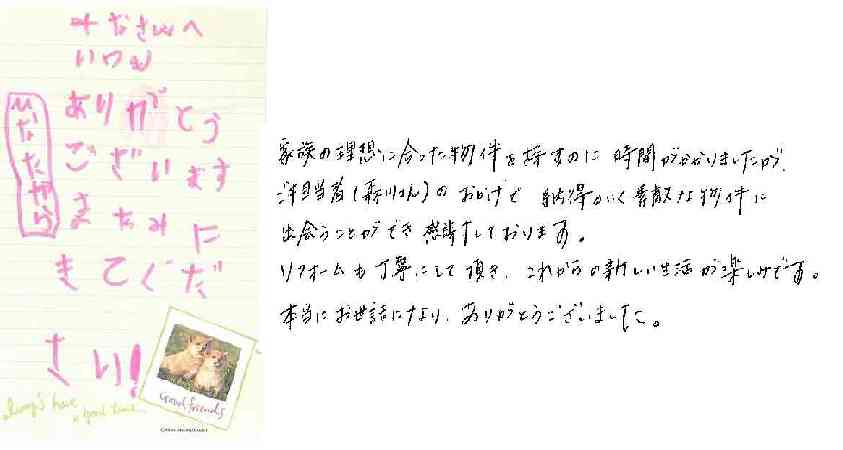 みなさんへ
いつも
ありがとう
ございます
またみに
きてくだ
さい!
ひなたから
always have
a good time
Good friends
家族の理想に合った物件を探すのに時間がかかりましたが、
ご担当者(森川さん)のおかげで納得のいく素敵な物件に
出会うことができ感謝しております。
リフォームも丁寧にして頂き、これからの新しい生活が楽しみです。
本当にお世話になり、ありがとうございました。